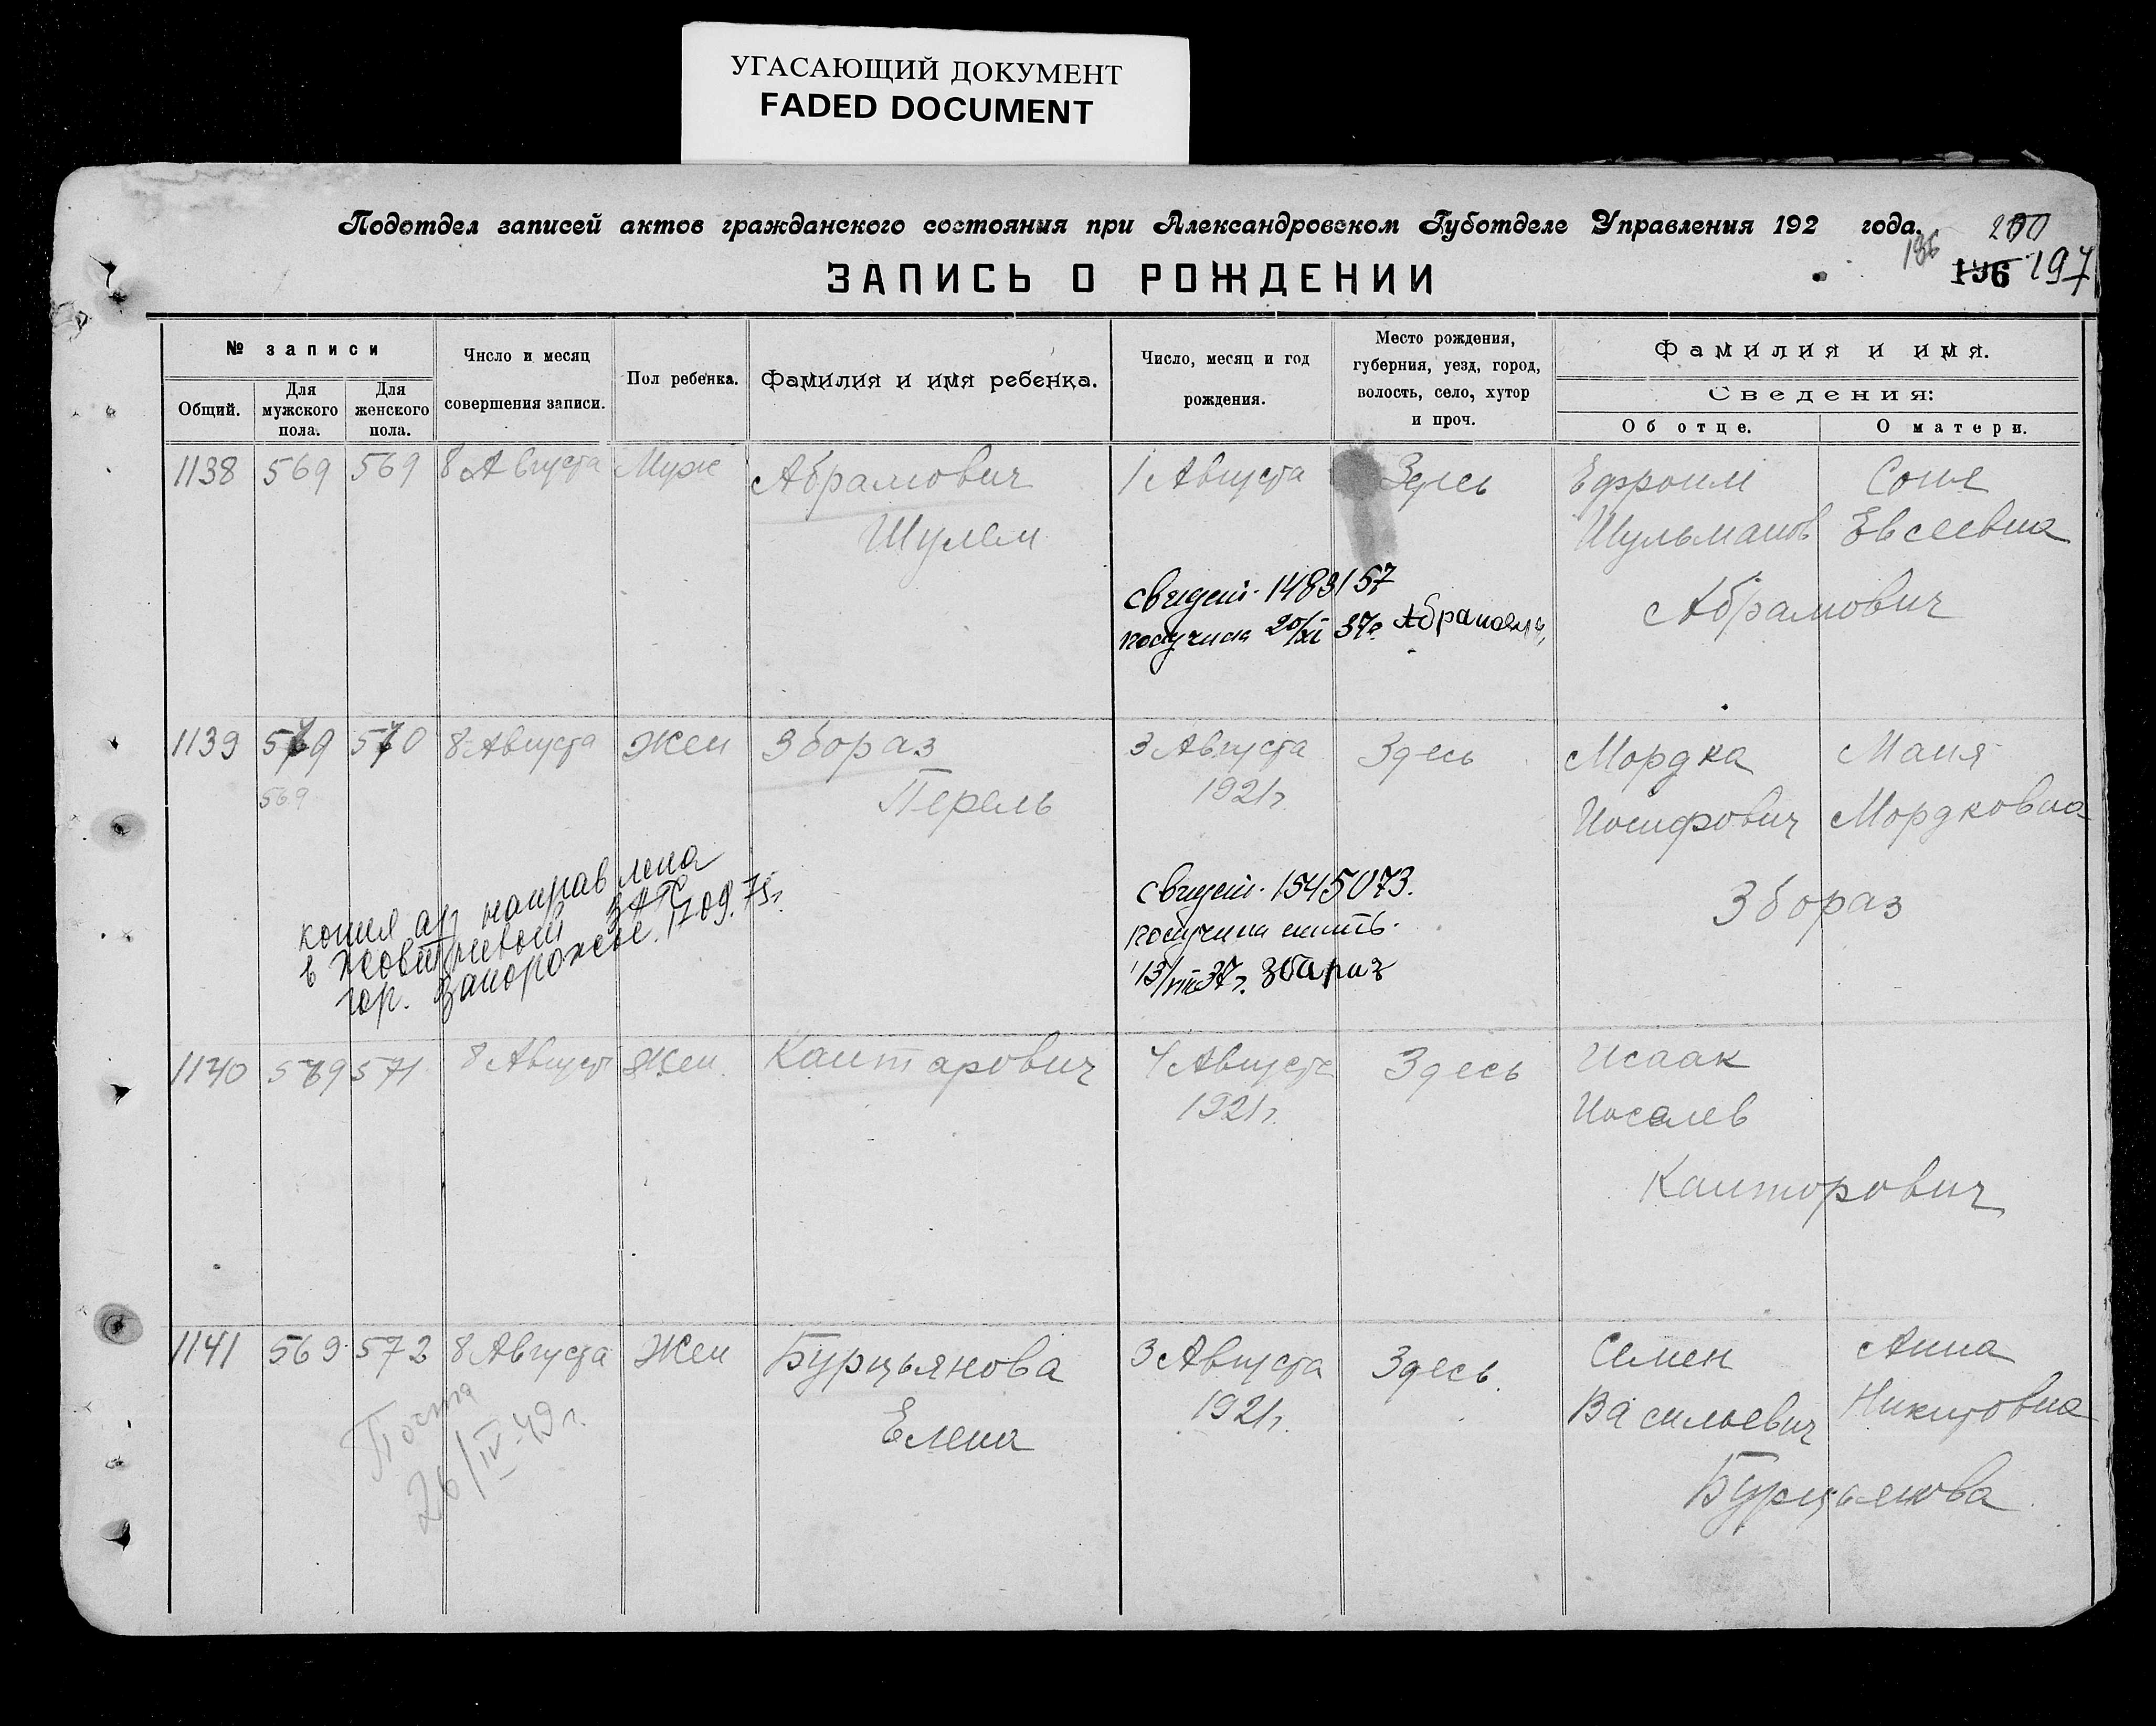 УГАСАЮЩИЙ ДОКУМЕНТ
FADED DOCUMENT
Подотдел записей актов гражданского состояния при Александровском Губотделе Управления 192 года.
200
186
196 197
ЗАПИСЬ О РОЖДЕНИИ
№ записи
Общий.
Для мужского пола.
Для женского пола.
Число и месяц
совершения записи.
Пол ребенка.
Фамилия и имя ребенка.
Число, месяц и год
рождения.
Место рождения,
губерния, уезд, город,
волость, село, хутор
и проч.
Фамилия и имя.
Сведения:
Об отце.
О матери.
1138 569 569 8 Августа Муж Абрамович 1 Августа Здесь Ефроим Соня
Шулем Шульманов Евсеевна
Абрамович
свидет. 1483157
получила 20/XI 37г.
1139 579 570 8 Августа Жен Збораз 3 Августа Здесь Мордка Маня
569 Перель 1921г. Иосифович Мордковна
Збораз
копия а/з направлена
в Жовтневый ЗАГС
гор. Запорожье. 17.09.75г.
свидет. 1545073.
получила мать.
13/VIII 37г. Збараз
1140 569 571 8 Август Жен. Кантарович 4 Августа Здесь Исаак
1921г. Иоселев
Канторович
1141 569 572 8 Августа Жен Бурцьянова 3 Августа Здесь. Семен Анна
Елена 1921г. Васильевич Никитовна
Бурцьянова
Почта
26/IV-49г.